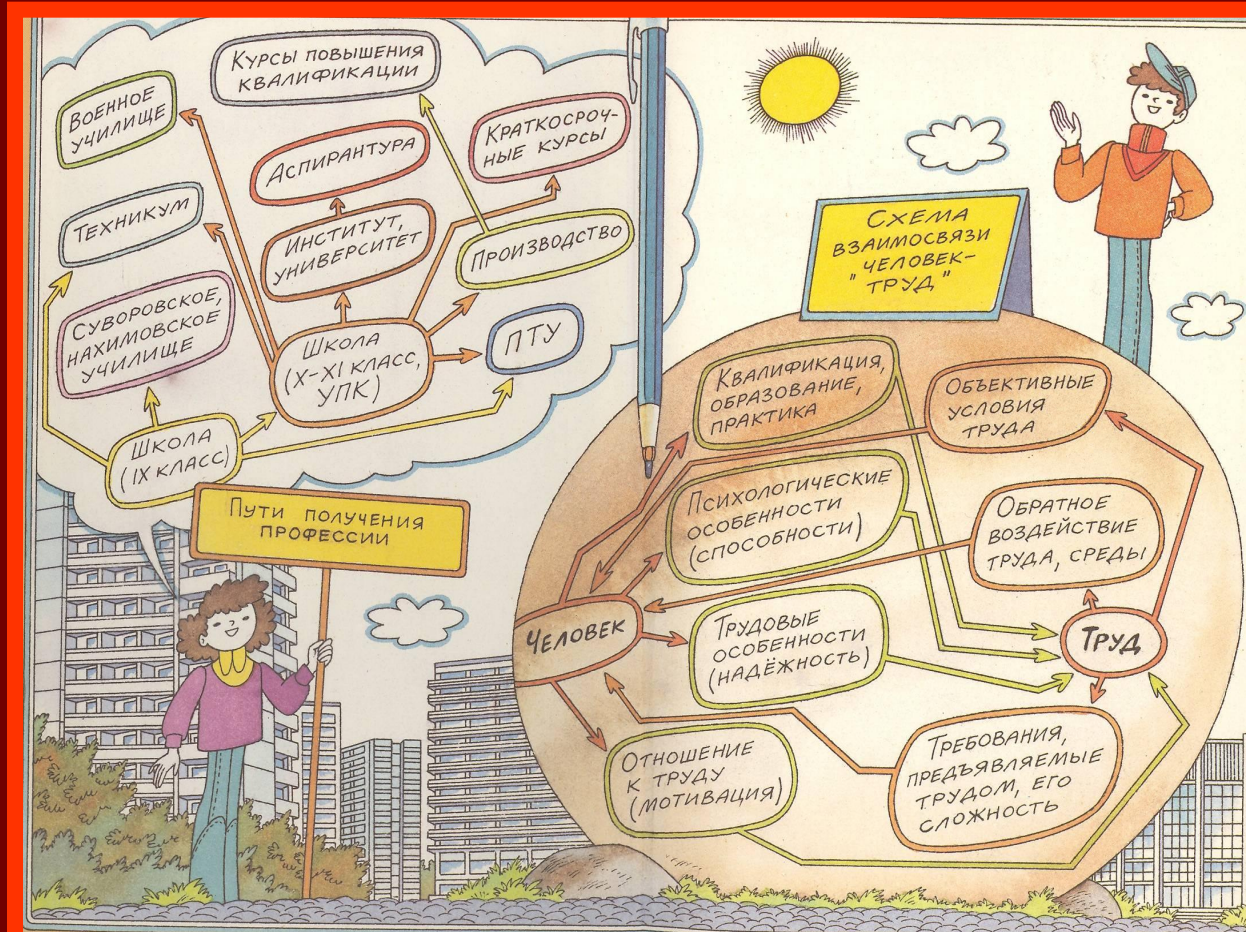 Курсы повышения
квалификации
Военное
училище
Аспирантура
Краткосроч-
ные курсы
Техникум
Институт,
университет
Производство
Суворовское,
нахимовское
училище
Школа
(X–XI класс,
УПК)
ПТУ
Школа
(IX класс)
Пути получения
профессии
Схема
взаимосвязи
"человек–
труд"
Квалификация,
образование,
практика
Объективные
условия
труда
Психологические
особенности
(способности)
Обратное
воздействие
труда, среды
Человек
Трудовые
особенности
(надёжность)
Труд
Отношение
к труду
(мотивация)
Требования,
предъявляемые
трудом, его
сложность